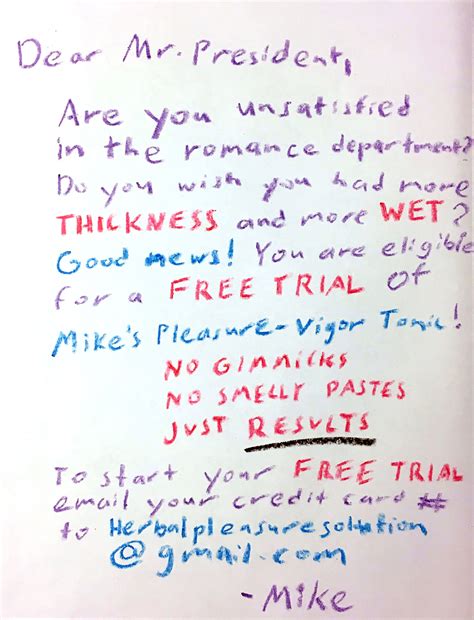 Dear Mr. President,
Are you unsatisfied
in the romance department?
Do you wish you had more
THICKNESS and more WET?
Good news! You are eligible
for a FREE TRIAL of
Mike's PleasurE-Vigor Tonic!
NO GIMMICKS
NO SMELLY PASTES
JUST RESULTS
To start your FREE TRIAL
email your credit card #
to Herbalpleasuresolution
@gmail.com
-Mike